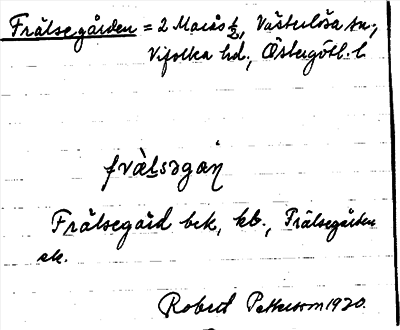 Frälsegården = 2 Marås ½, Västerlösa sn.,
Vifolka hd., Östergötl. l
frälsəgan
Frälsegård bek, kb., Frälsegården
sk.
Robert Petterson 1920.